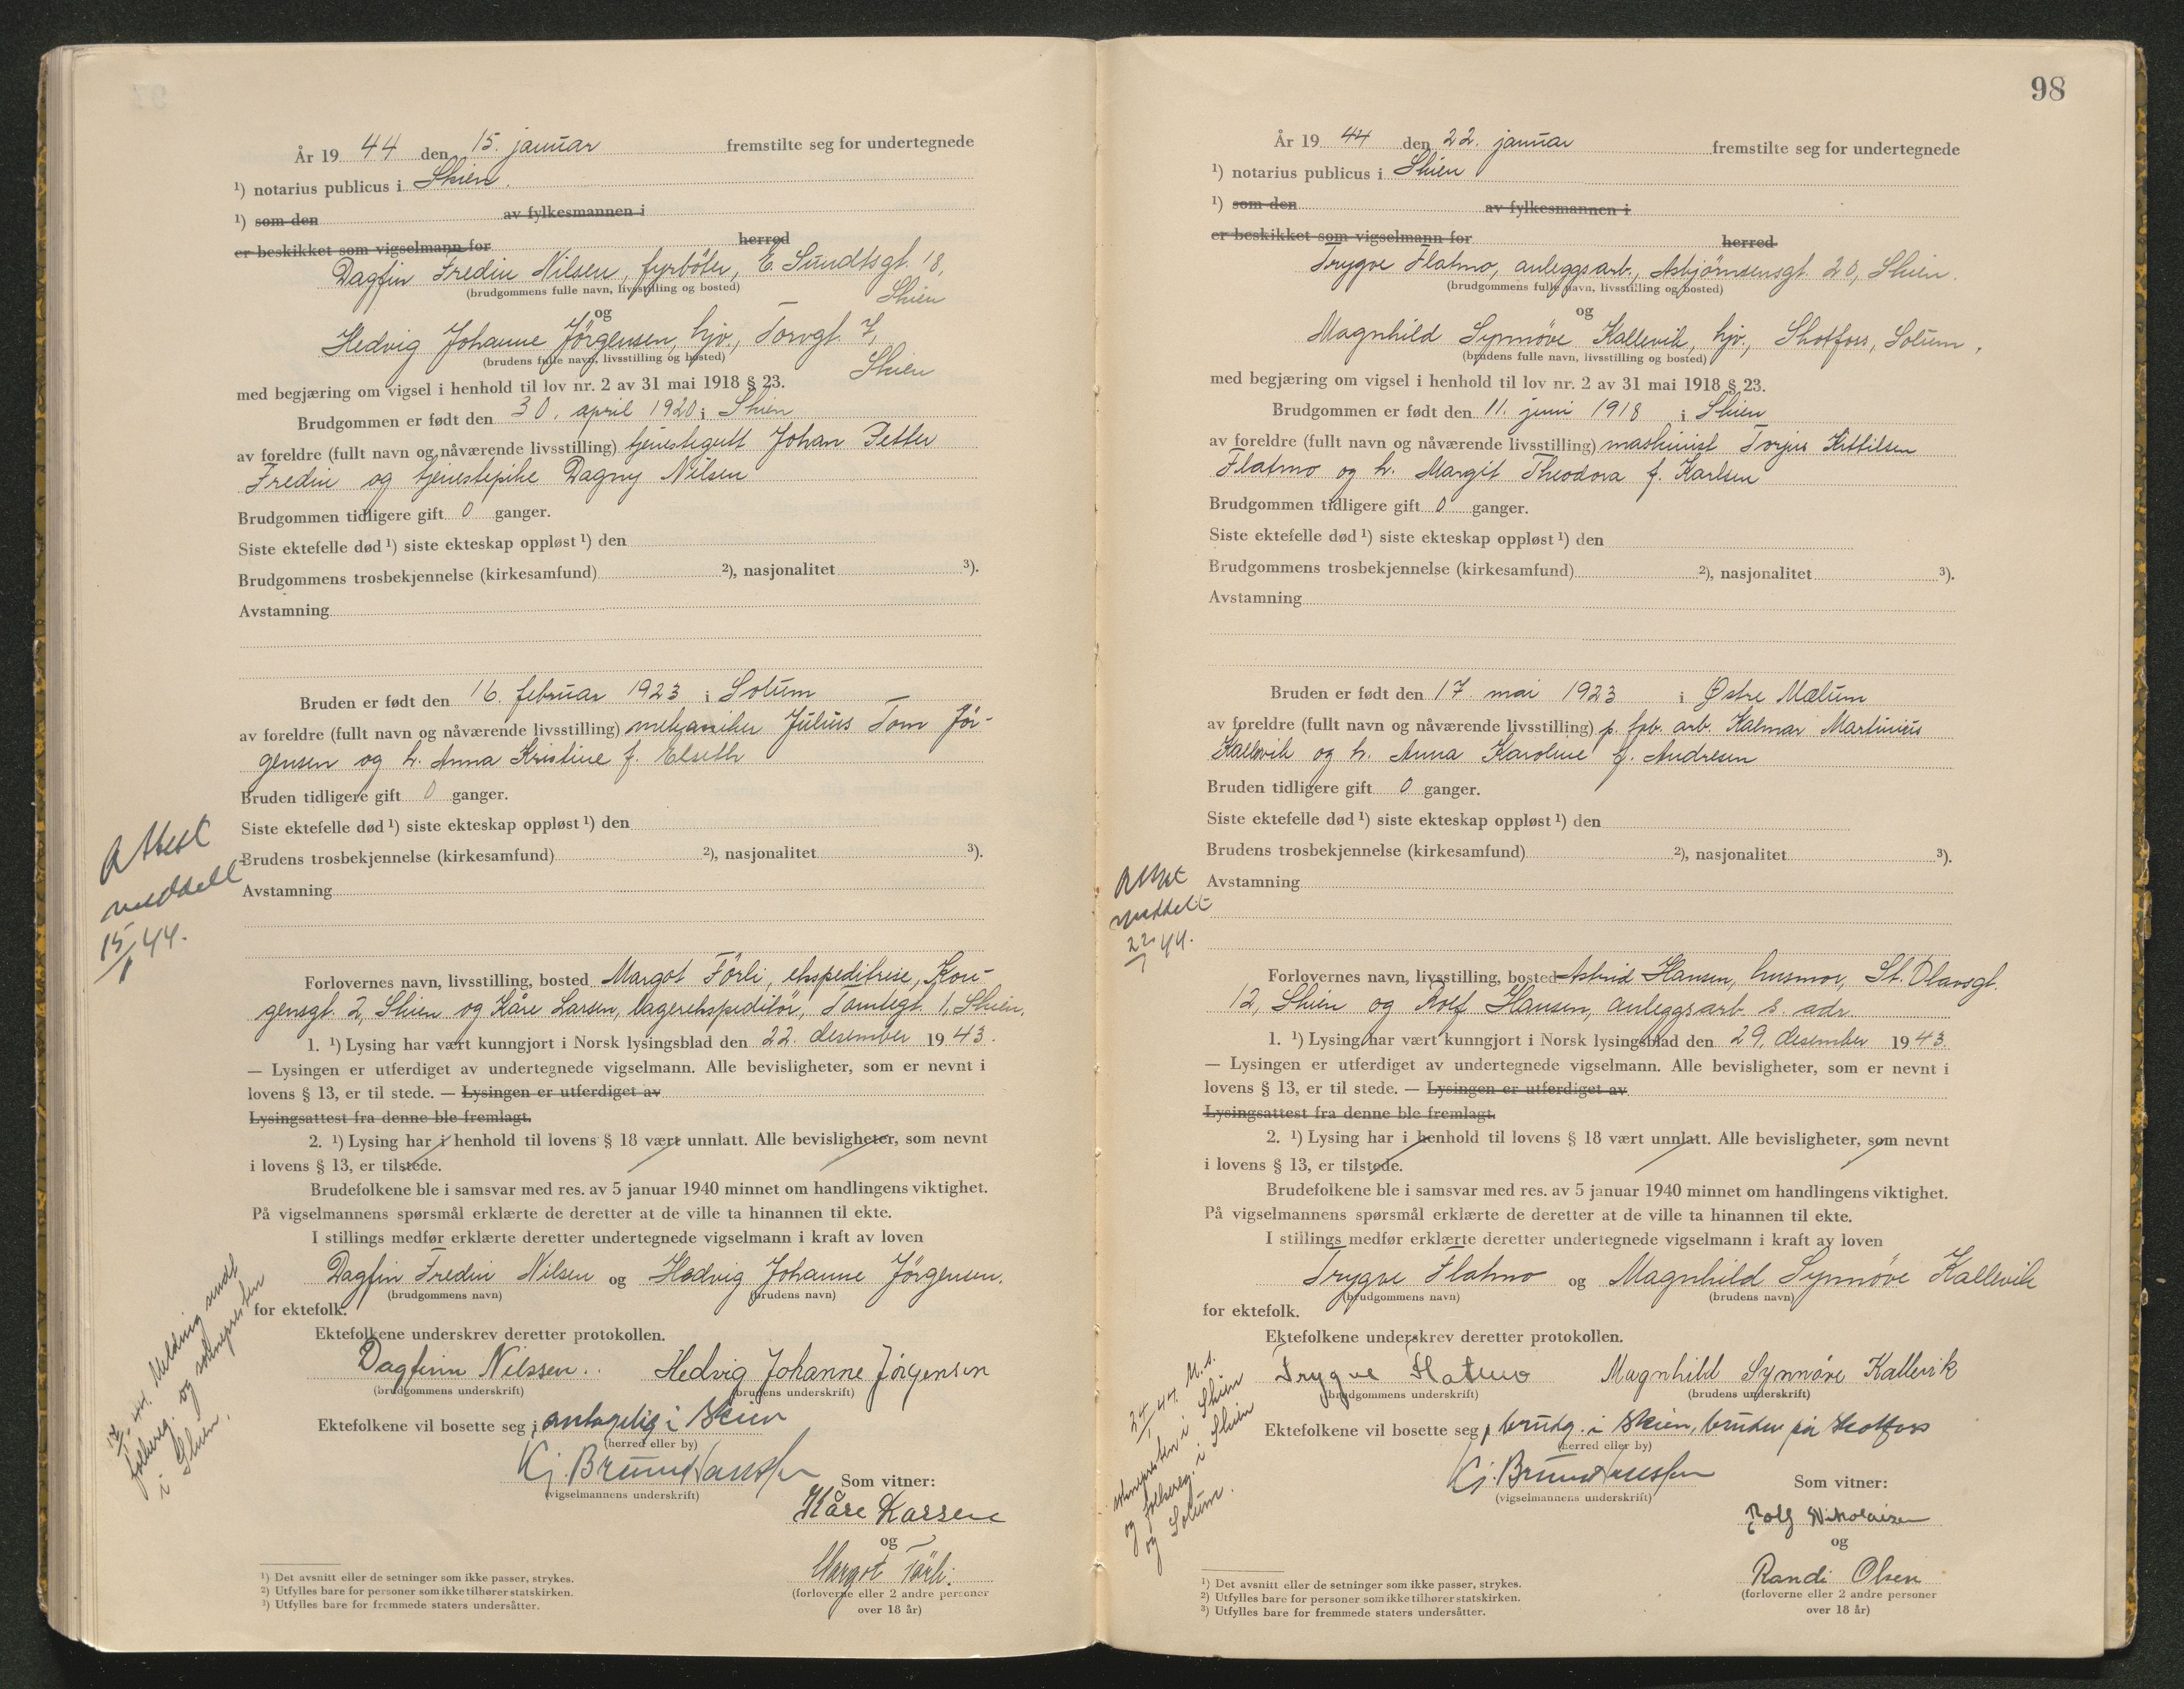 År 19 44 den 15. januar fremstilte seg for undertegnede
¹) notarius publicus i Skien.
¹) som den av fylkesmannen i
er beskikket som vigselmann for herred
Dagfin Fredin Nilsen, fyrböter, E. Sundtsgt. 18,
(brudgommens fulle navn, livsstilling og bosted)
Skien
og
Hedvig Johanne Jörgensen, hjv., Torvgt. 7,
(brudens fulle navn, livsstilling og bosted)
Skien
med begjæring om vigsel i henhold til lov nr. 2 av 31 mai 1918 § 23.
Brudgommen er født den 30. april 1920 i Skien
av foreldre (fullt navn og nåværende livsstilling) tjenestegutt Johan Petter
Fredin og tjenestepike Dagny Nilsen
Brudgommen tidligere gift 0 ganger.
Siste ektefelle død ¹) siste ekteskap oppløst ¹) den
Brudgommens trosbekjennelse (kirkesamfund) ²), nasjonalitet ³).
Avstamning
Bruden er født den 16. februar 1923 i Solum
av foreldre (fullt navn og nåværende livsstilling) mekaniker Julius Tom Jör-
gensen og h. Anna Kristine f. Elseth
Bruden tidligere gift 0 ganger.
Siste ektefelle død ¹) siste ekteskap oppløst ¹) den
Brudens trosbekjennelse (kirkesamfund) ²), nasjonalitet ³).
Avstamning
Attest
meddelt
15/1 44.
Forlovernes navn, livsstilling, bosted Margot Förli, ekspeditrise, Kon-
gensgt. 2, Skien og Kåre Larsen, lagerekspeditör, Tomtegt. 1, Skien.
1. ¹) Lysing har vært kunngjort i Norsk lysingsblad den 22. desember 19 43.
— Lysingen er utferdiget av undertegnede vigselmann. Alle bevisligheter, som er nevnt i
lovens § 13, er til stede. — Lysingen er utferdiget av
Lysingsattest fra denne ble fremlagt.
2. ¹) Lysing har i henhold til lovens § 18 vært unnlatt. Alle bevisligheter, som nevnt
i lovens § 13, er tilstede.
Brudefolkene ble i samsvar med res. av 5 januar 1940 minnet om handlingens viktighet.
På vigselmannens spørsmål erklærte de deretter at de ville ta hinannen til ekte.
I stillings medfør erklærte deretter undertegnede vigselmann i kraft av loven
Dagfin Fredin Nilsen og Hedvig Johanne Jörgensen.
(brudgommens navn) (brudens navn)
for ektefolk.
Ektefolkene underskrev deretter protokollen.
Dagfinn Nilssen.. Hedvig Johanne Jörgensen
(brudgommens underskrift) (brudens underskrift)
Ektefolkene vil bosette seg i antagelig i Skien
(herred eller by)
Kj. Brund Hanssen
(vigselmannens underskrift)
Som vitner:
Kåre Larsen
og
Margot Förli.
(forloverne eller 2 andre personer
over 18 år)
Melding sendt
folkereg. og soknepresten
i Skien.
¹) Det avsnitt eller de setninger som ikke passer, strykes.
²) Utfylles bare for personer som ikke tilhører statskirken.
³) Utfylles bare for fremmede staters undersåtter.
98
År 19 44 den 22. januar fremstilte seg for undertegnede
¹) notarius publicus i Skien
¹) som den av fylkesmannen i
er beskikket som vigselmann for herred
Trygve Flatmo, anleggsarb., Asbjörnsensgt. 20, Skien.
(brudgommens fulle navn, livsstilling og bosted)
og
Magnhild Synnøve Kallevik, hjv., Skotfoss, Solum.
(brudens fulle navn, livsstilling og bosted)
med begjæring om vigsel i henhold til lov nr. 2 av 31 mai 1918 § 23.
Brudgommen er født den 11. juni 1918 i Skien
av foreldre (fullt navn og nåværende livsstilling) maskinist Torjus Kittilsen
Flatmo og h. Margit Theodora f. Karlsen
Brudgommen tidligere gift 0 ganger.
Siste ektefelle død ¹) siste ekteskap oppløst ¹) den
Brudgommens trosbekjennelse (kirkesamfund) ²), nasjonalitet ³).
Avstamning
Bruden er født den 17. mai 1923 i Østre Mælum
av foreldre (fullt navn og nåværende livsstilling) p. fab. arb. Kalmar Martinius
Kallevik og h. Anna Karoline f. Andresen
Bruden tidligere gift 0 ganger.
Siste ektefelle død ¹) siste ekteskap oppløst ¹) den
Brudens trosbekjennelse (kirkesamfund) ²), nasjonalitet ³).
Avstamning
Attest
meddelt
22/1 44.
Forlovernes navn, livsstilling, bosted Astrid Hansen, husmor, St. Olavsgt.
12, Skien og Rolf Hansen, anleggsarb. s. adr.
1. ¹) Lysing har vært kunngjort i Norsk lysingsblad den 29. desember 19 43
— Lysingen er utferdiget av undertegnede vigselmann. Alle bevisligheter, som er nevnt i
lovens § 13, er til stede. — Lysingen er utferdiget av
Lysingsattest fra denne ble fremlagt.
2. ¹) Lysing har i henhold til lovens § 18 vært unnlatt. Alle bevisligheter, som nevnt
i lovens § 13, er tilstede.
Brudefolkene ble i samsvar med res. av 5 januar 1940 minnet om handlingens viktighet.
På vigselmannens spørsmål erklærte de deretter at de ville ta hinannen til ekte.
I stillings medfør erklærte deretter undertegnede vigselmann i kraft av loven
Trygve Flatmo og Magnhild Synnøve Kallevik
(brudgommens navn) (brudens navn)
for ektefolk.
Ektefolkene underskrev deretter protokollen.
Trygve Flatmo Magnhild Synnöve Kallevik
(brudgommens underskrift) (brudens underskrift)
Ektefolkene vil bosette seg i brudg. i Skien, bruden på Skotfoss
(herred eller by)
Kj. Brund Hanssen
(vigselmannens underskrift)
Som vitner:
Rolf Nikolaisen
og
Randi Olsen
(forloverne eller 2 andre personer
over 18 år)
24/1 44 M. s.
soknepresten i Skien
og folkereg. i Skien
og Solum.
¹) Det avsnitt eller de setninger som ikke passer, strykes.
²) Utfylles bare for personer som ikke tilhører statskirken.
³) Utfylles bare for fremmede staters undersåtter.